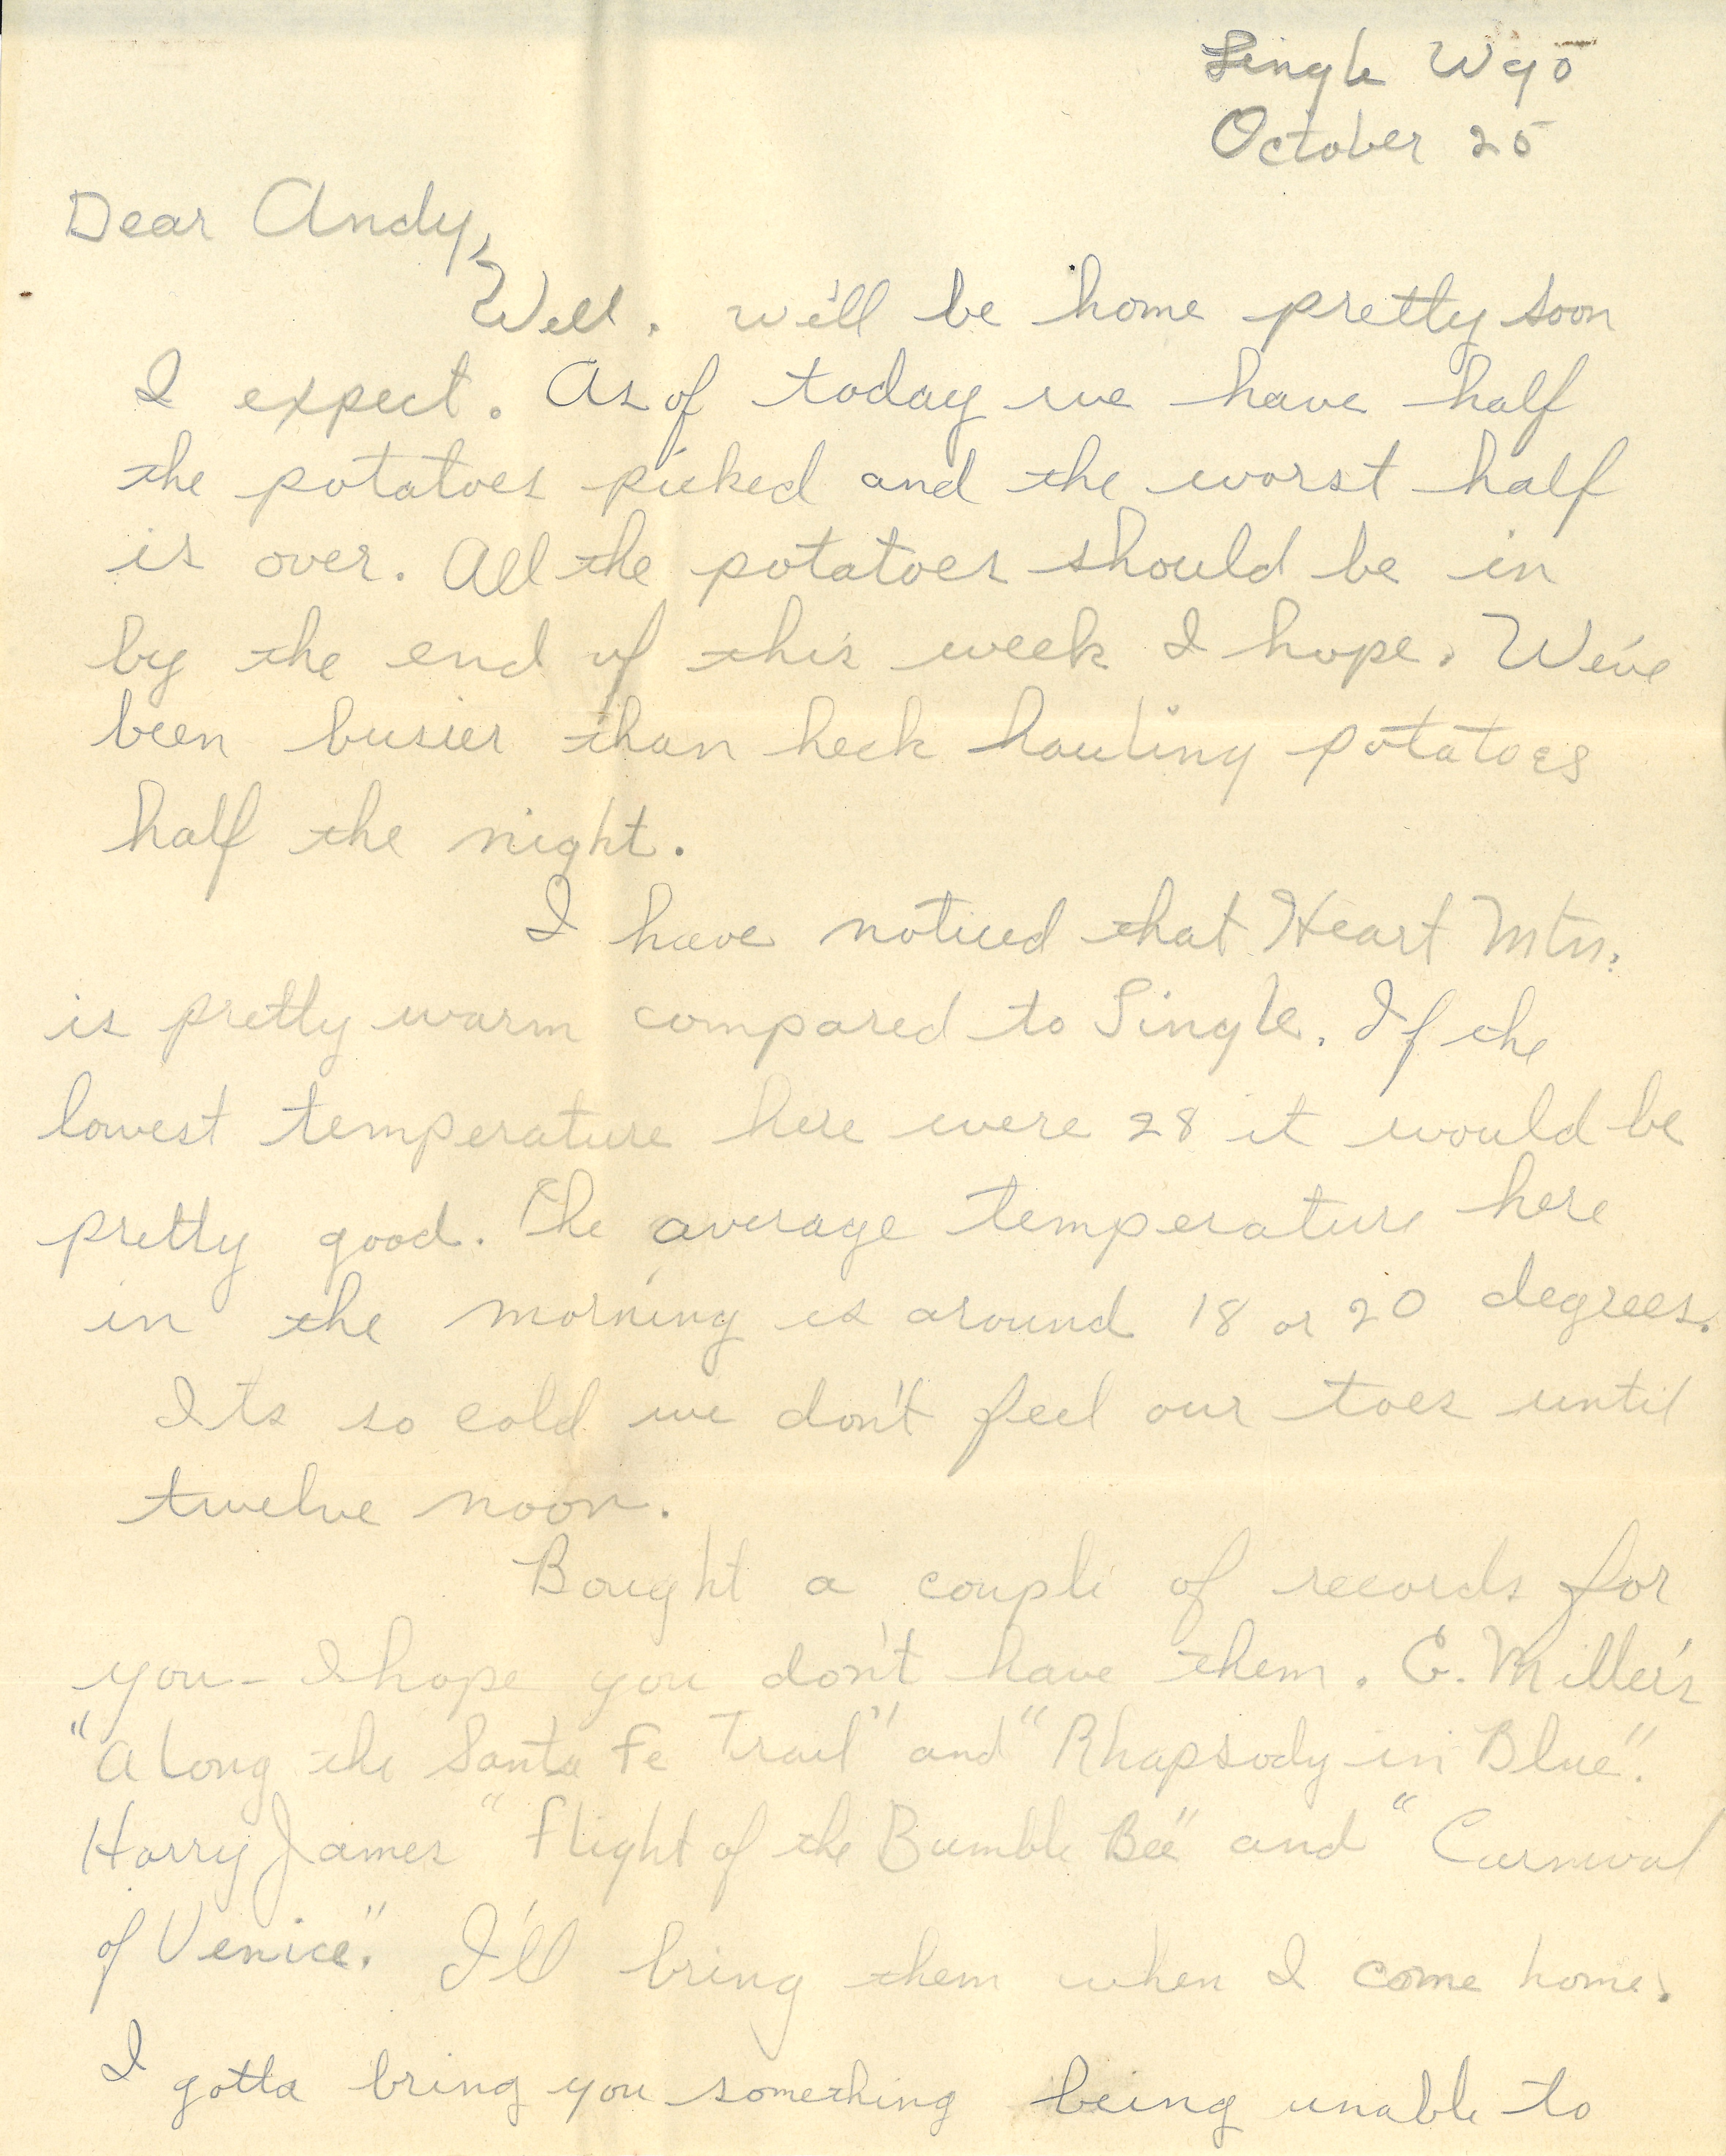 Lingle Wyo
October 25
Dear Andy,
Well. we'll be home pretty soon
I expect. As of today we have half
the potatoes picked and the worst half
is over. All the potatoes should be in
by the end of this week I hope. We've
been busier than heck hauling potatoes
half the night.
I have noticed that Heart Mtn.
is pretty warm compared to Lingle. If the
lowest temperature here were 28 it would be
pretty good. The average temperature here
in the morning is around 18 or 20 degrees.
Its so cold we don't feel our toes until
twelve noon.
Bought a couple of records for
you - I hope you don't have them. G. Miller's
"Along the Santa Fe Trail" and "Rhapsody in Blue".
Harry James "Flight of the Bumble Bee" and "Carnival
of Venice." I'll bring them when I come home.
I gotta bring you something being unable to